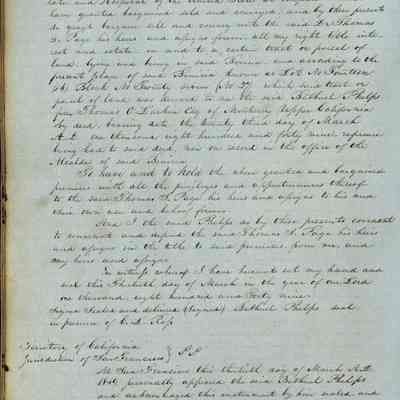 have granted bargained sold and conveyed, and by these presents
do grant bargain sell and convey unto the said Dr Thomas
S. Page his heirs and assigns forever all my right title inter-
est and estate in and to a certain tract or parcel of
land, lying and being in said Benicia and according to the
present plan of said Benicia known as Lot No Fourteen
Block No Twenty seven (No 27) which said tract or
parcel of land was deeded to me the said Bethuel Phelps
from Thomas O Larkin City of Monterey Upper California
by deed bearing date the twenty third day of March
A.D. one thousand eight hundred and forty nine reference
being had to said deed, now on record in the office of the
Alcalde of said Benicia
To have and to hold the above granted and bargained
premises with all the privileges and appurtenances thereof
to the said Thomas S. Page his heirs and assigns to his and
their own use and behoof forever
And I the said Phelps do by these presents covenant
to warrant and defend the said Thomas S. Page his heirs
and assigns in the title to said premises from me and
my heirs and assigns
In witness whereof I have hereunto set my hand and
seal this Thirtieth day of March in the year of our Lord
one thousand eight hundred and forty nine
Signed Sealed and delivered (Signed) Bethuel Phelps seal
in presence of C. L. Ross
Territory of California
Jurisdiction of San Francisco } S.S
In San Francisco this thirtieth day of March
1849 personally appeared the said Bethuel Phelps
and acknowledged this instrument by him sealed and